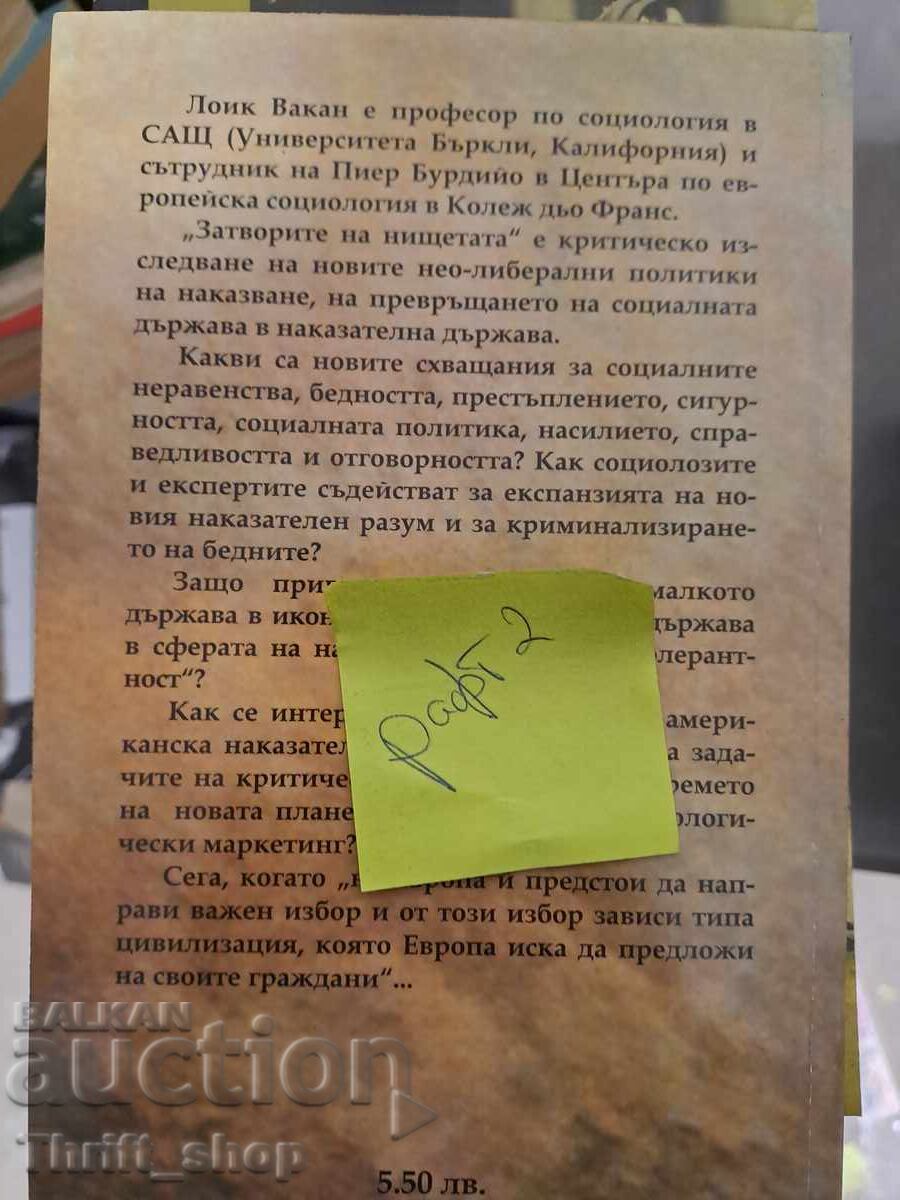 Лоик Вакан е професор по социология в
САЩ (Университета Бъркли, Калифорния) и
сътрудник на Пиер Бурдийо в Центъра по ев-
ропейска социология в Колеж дьо Франс.
„Затворите на нищетата“ е критическо из-
следване на новите нео-либерални политики
на наказване, на превръщането на социалната
държава в наказателна държава.
Какви са новите схващания за социалните
неравенства, бедността, престъплението, сигур-
ността, социалната политика, насилието, спра-
ведливостта и отговорността? Как социолозите
и експертите съдействат за експанзията на но-
вия наказателен разум и за криминализиране-
то на бедните?
Защо малкото
държава в държава
в сферата на
ност“?
Как се амери-
канска зада-
чите на
на новата
чески маркетинг?
Сега, когато Европа и предстои да нап-
рави важен избор и от този избор зависи типа
цивилизация, която Европа иска да предложи
на своите граждани“...
рафт 2
BALKAN
auction
Thrift_shop
5.50 лв.